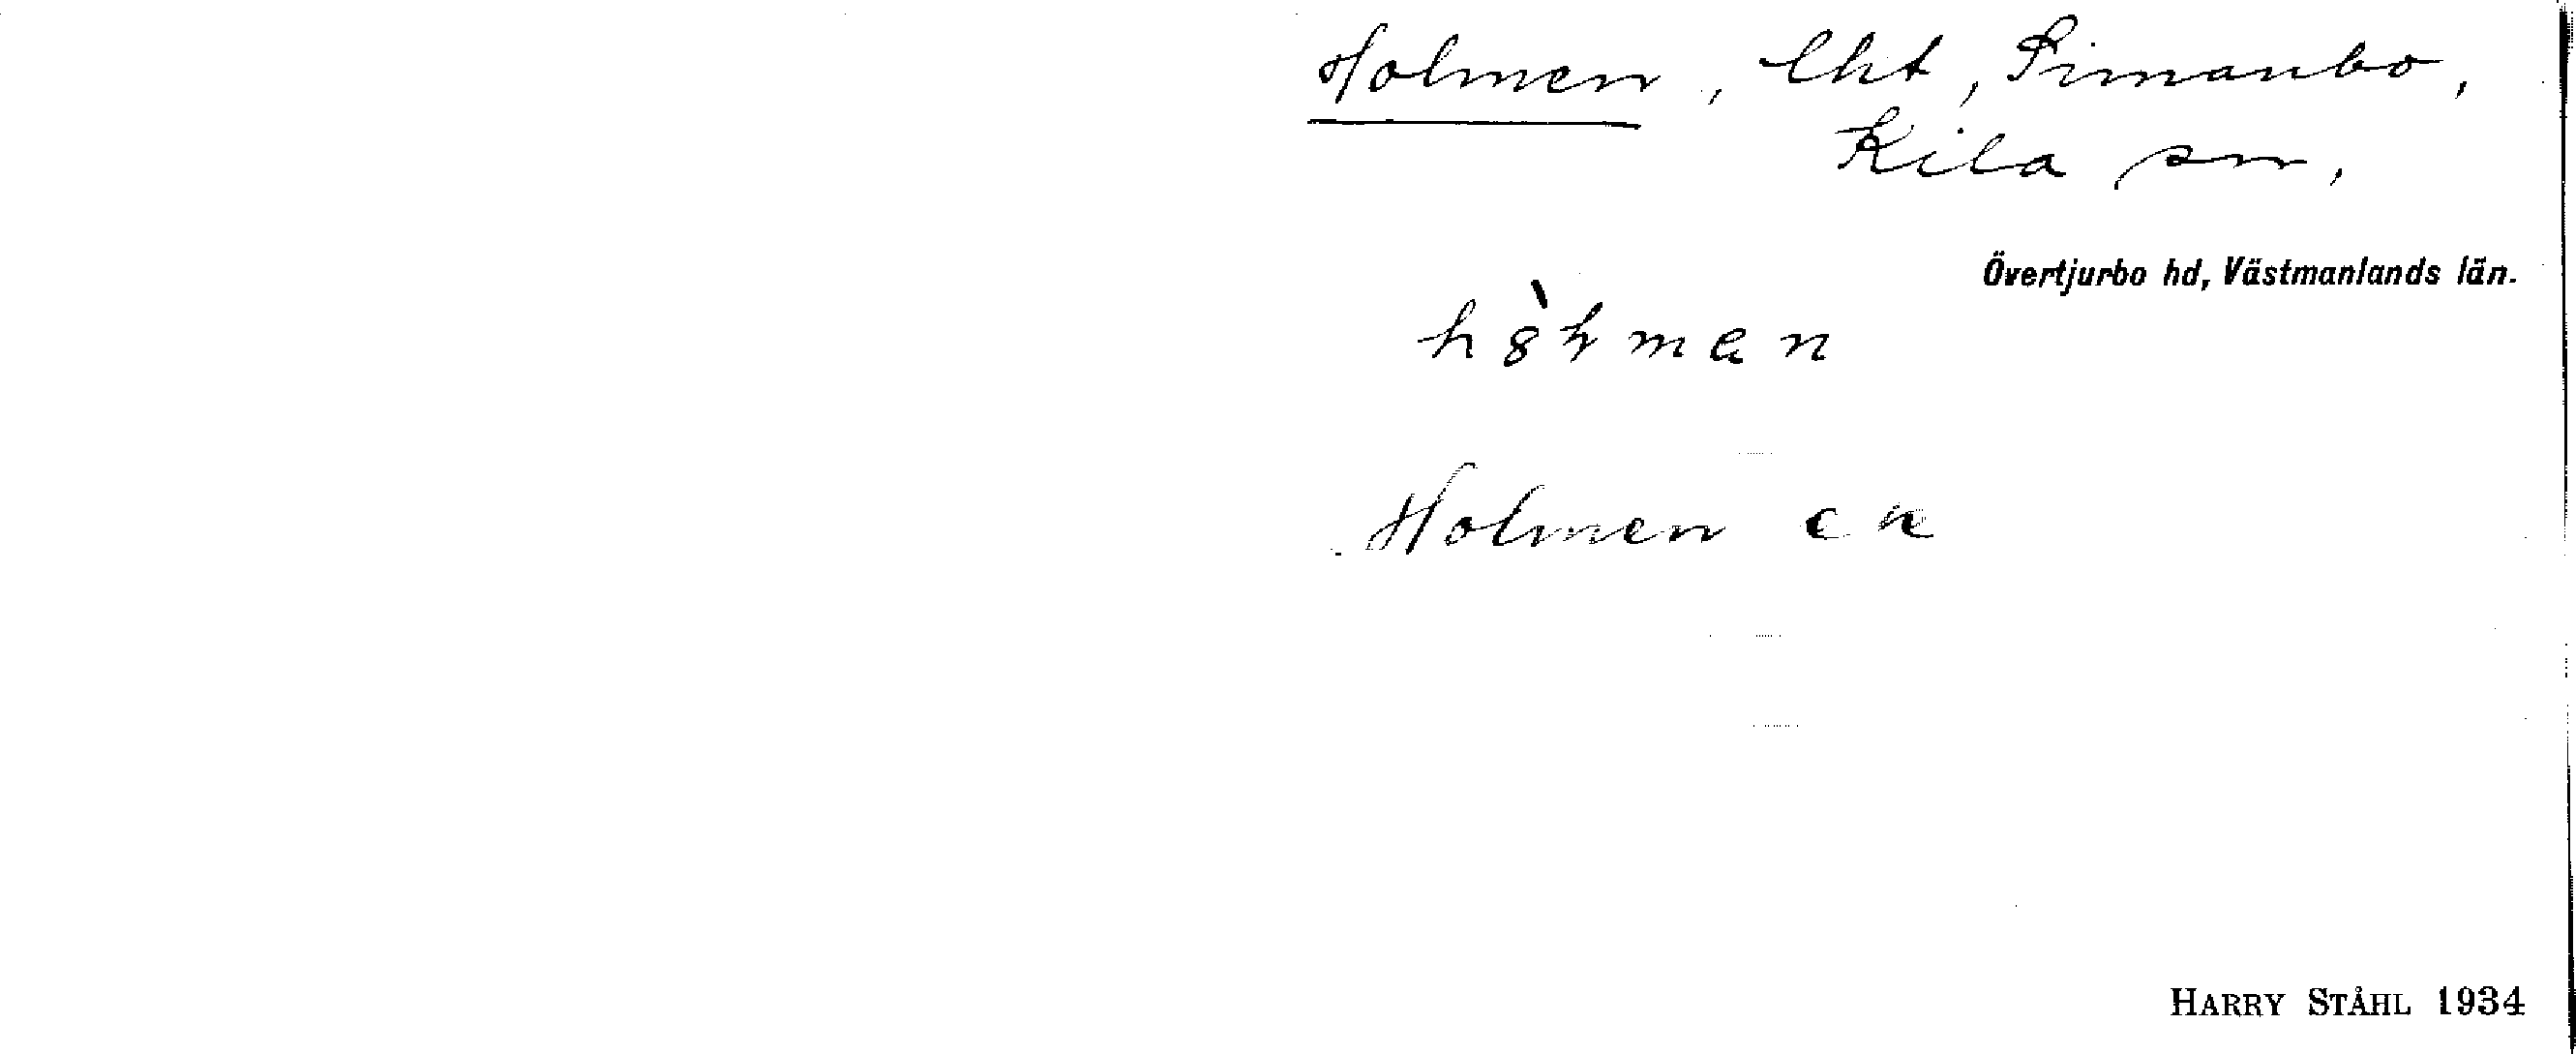 Holmen, lht, Simanbo,
Kila sn,
Övertjurbo hd, Västmanlands län.
Holmen
HARRY STÅHL 1934